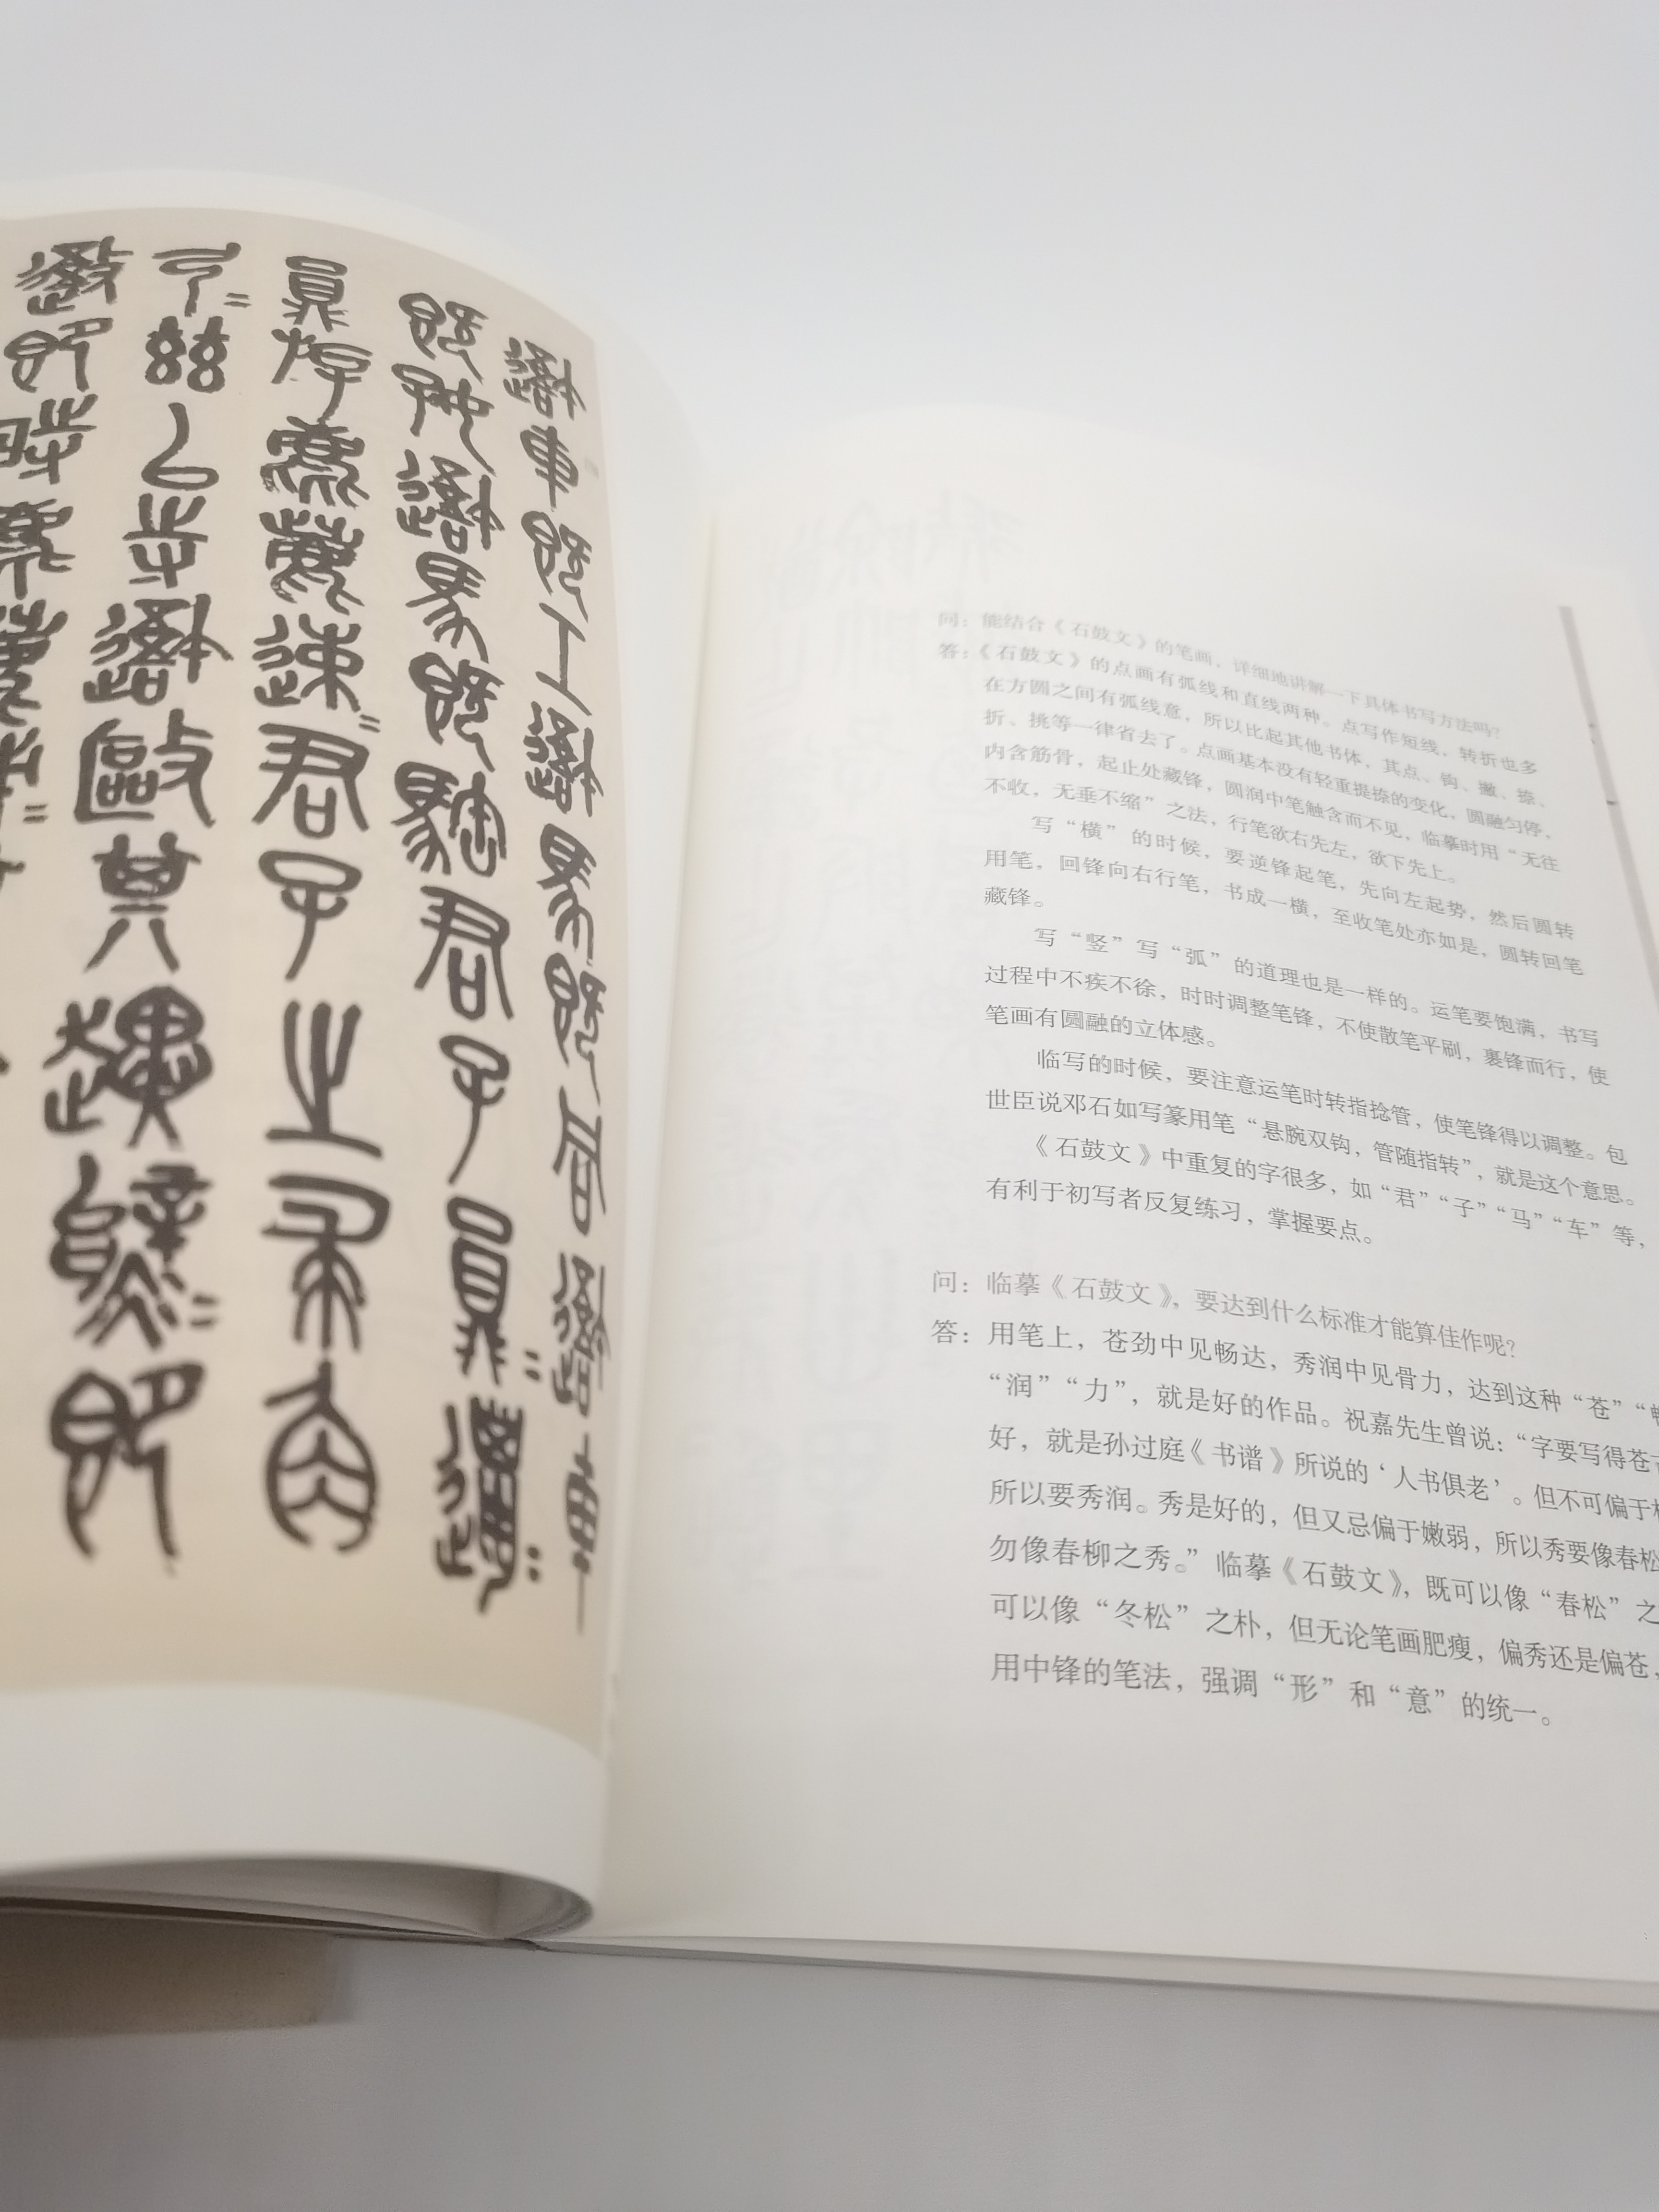 避車既工避馬既同避車
既好避馬既君子員邋
員斿麀鹿速君子之求
弓茲以寺避敺其
問：能结合《石鼓文》的笔画，详细地讲解一下具体书写方法吗？
答：《石鼓文》的点画有弧线和直线两种。点写作短线，转折也多
在方圆之间有弧线意，所以比起其他书体，其点、钩、撇、捺、
折、挑等一律省去了。点画基本没有轻重提捺的变化，圆融匀停，
内含筋骨，起止处藏锋，圆润中笔触含而不见，临摹时用“无往
不收，无垂不缩”之法，行笔欲右先左，欲下先上。
写“横”的时候，要逆锋起笔，先向左起势，然后圆转
用笔，回锋向右行笔，书成一横，至收笔处亦如是，圆转回笔
藏锋。
写“竖”写“弧”的道理也是一样的。运笔要饱满，书写
过程中不疾不徐，时时调整笔锋，不使散笔平刷，裹锋而行，使
笔画有圆融的立体感。
临写的时候，要注意运笔时转指捻管，使笔锋得以调整。包
世臣说邓石如写篆用笔“悬腕双钩，管随指转”，就是这个意思。
《石鼓文》中重复的字很多，如“君”“子”“马”“车”等，
有利于初写者反复练习，掌握要点。
问：临摹《石鼓文》，要达到什么标准才能算佳作呢？
答：用笔上，苍劲中见畅达，秀润中见骨力，达到这种“苍”“
“润”“力”，就是好的作品。祝嘉先生曾说：“字要写得苍
好，就是孙过庭《书谱》所说的‘人书俱老’。但不可偏于
所以要秀润。秀是好的，但又忌偏于嫩弱，所以秀要像春松
勿像春柳之秀。”临摹《石鼓文》，既可以像“春松”之
可以像“冬松”之朴，但无论笔画肥瘦，偏秀还是偏苍，
用中锋的笔法，强调“形”和“意”的统一。